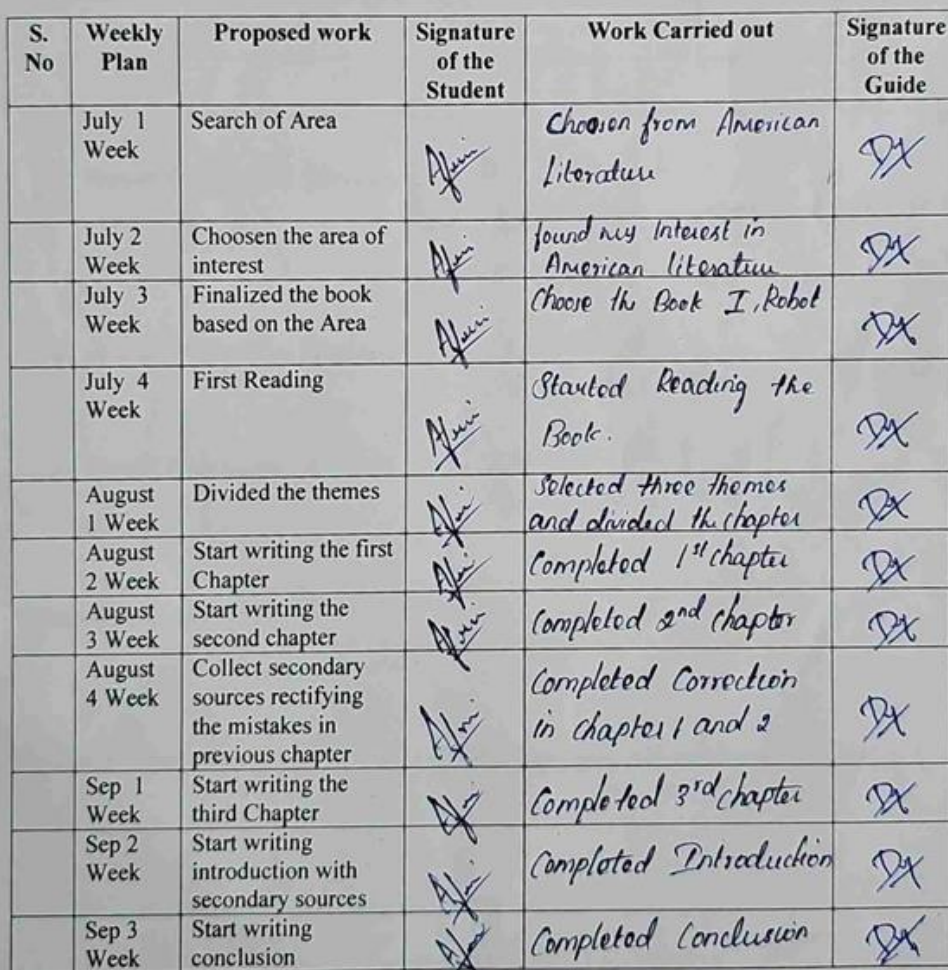 S. No | Weekly Plan | Proposed work | Signature of the Student | Work Carried out | Signature of the Guide
July 1 Week | Search of Area | Choosen from American Literature
July 2 Week | Choosen the area of interest | found my Interest in American literature
July 3 Week | Finalized the book based on the Area | Choose the Book I, Robot
July 4 Week | First Reading | Started Reading the Book.
August 1 Week | Divided the themes | Selected three themes and divided the chapter
August 2 Week | Start writing the first Chapter | Completed 1st chapter
August 3 Week | Start writing the second chapter | Completed 2nd chapter
August 4 Week | Collect secondary sources rectifying the mistakes in previous chapter | Completed Correction in chapter 1 and 2
Sep 1 Week | Start writing the third Chapter | Completed 3rd chapter
Sep 2 Week | Start writing introduction with secondary sources | Completed Introduction
Sep 3 Week | Start writing conclusion | Completed Conclusion